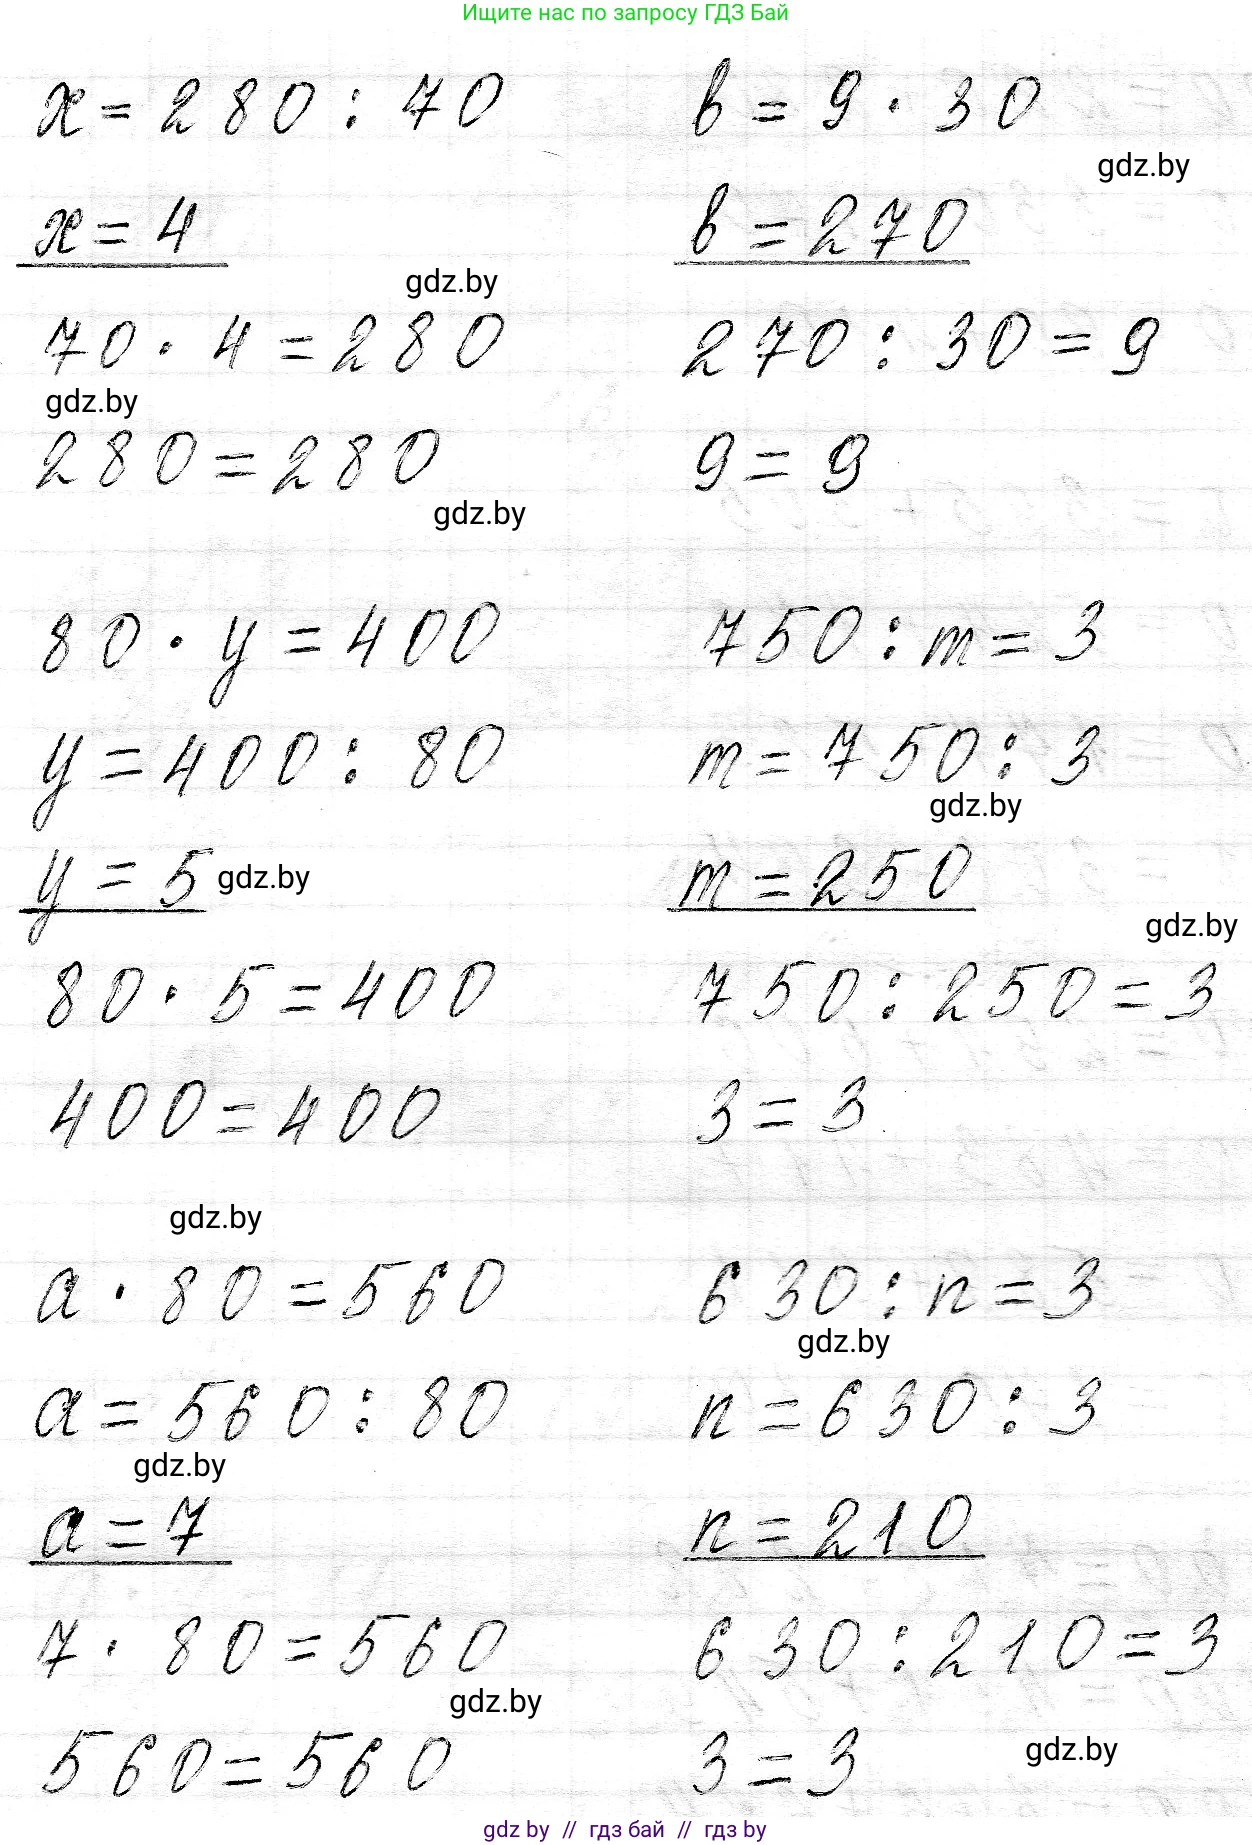 Ищите нас по запросу ГДЗ Бай
x = 280 : 70
x = 4
gdz.by
70 · 4 = 280
gdz.by
280 = 280
gdz.by
80 · y = 400
y = 400 : 80
y = 5 gdz.by
80 · 5 = 400
400 = 400
gdz.by
a · 80 = 560
a = 560 : 80
gdz.by
a = 7
7 · 80 = 560
gdz.by
560 = 560
b = 9 · 30
gdz.by
b = 270
270 : 30 = 9
9 = 9
750 : m = 3
m = 750 : 3
gdz.by
m = 250
gdz.by
750 : 250 = 3
3 = 3
630 : n = 3
gdz.by
n = 630 : 3
n = 210
630 : 210 = 3
3 = 3
gdz.by
gdz by // гдз бай // гдз by